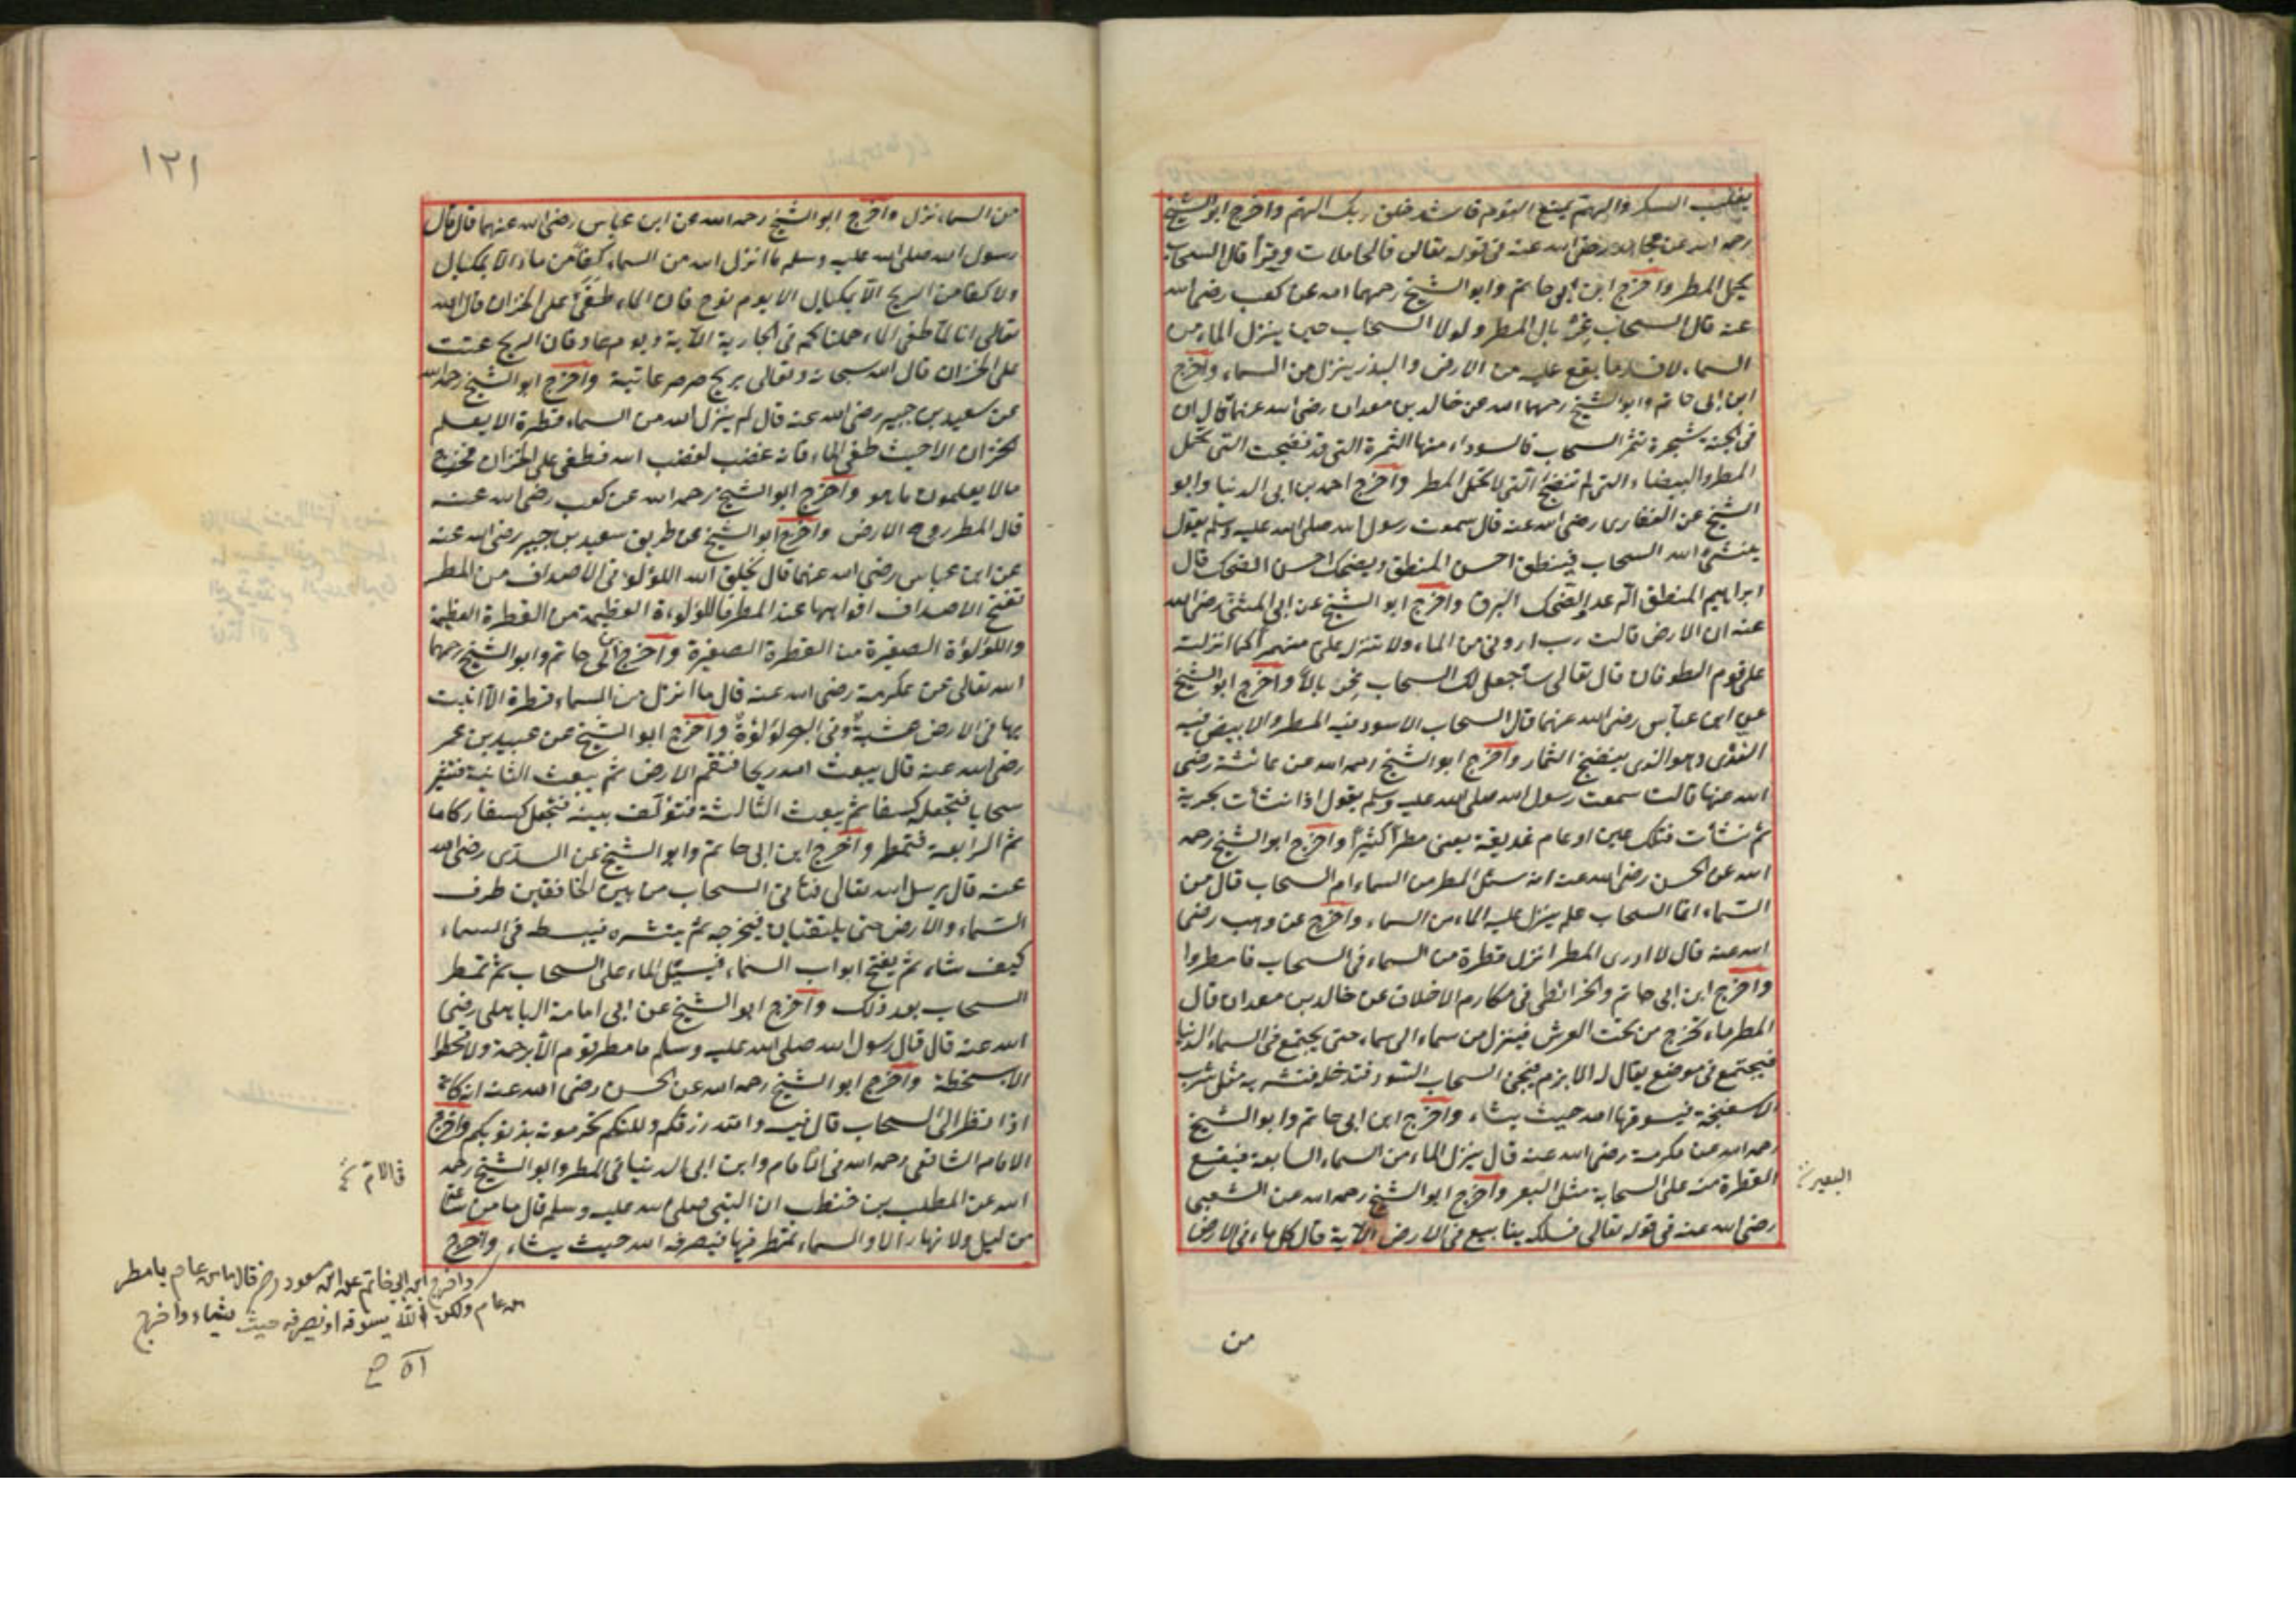 يغلب السكر والهم يمنع النوم فاشد خلق ربك الهم واخرج ابو الشيخ
رحمه الله عن مجاهد رضى الله عنه فى قوله تعالى فالحاملات وقرا قال السحاب
يحمل المطر واخرج ابن ابى حاتم وابو الشيخ رحمهما الله عن كعب رضى الله
عنه قال السحاب غربال المطر ولولا السحاب حين ينزل الماء من
السماء لافسد ما يقع عليه من الارض والبذر ينزل من السماء واخرج
ابن ابى حاتم وابو الشيخ رحمهما الله عن خالد بن معدان رضى الله عنهما قال ان
فى الجنة شجرة تثمر السحاب فالسوداء منها الثمرة التى قد نضجت التى تحمل
المطر والبيضاء التى لم تنضج التى لا تحمل المطر واخرج احمد بن ابى الدنيا وابو
الشيخ عن الغفارى رضى الله عنه قال سمعت رسول الله صلى الله عليه وسلم يقول
ينشئ الله السحاب فينطق احسن المنطق ويضحك احسن الضحك قال
ابراهيم المنطق الرعد والضحك البرق واخرج ابو الشيخ عن ابى المثنى رضى الله
عنه ان الارض قالت رب اروني من الماء ولا تنزله على منهمرا كما انزلته
على قوم الطوفان قال تعالى ساجعل لك السحاب غربالا واخرج ابو الشيخ
عن ابن عباس رضى الله عنهما قال السحاب الاسود فيه المطر والابيض فيه
الندى وهو الذى ينضج الثمار واخرج ابو الشيخ رحمه الله عن عائشة رضى
الله عنها قالت سمعت رسول الله صلى الله عليه وسلم يقول اذا نشأت بحرية
ثم نشأت فتلك عين او عام غديقة يعنى مطرا كثيرا واخرج ابو الشيخ رحمه
الله عن الحسن رضى الله عنه انه سئل المطر من السماء ام السحاب قال من
السماء انما السحاب علم ينزل عليه الماء من السماء واخرج عن وهب رضى
الله عنه قال لا ادرى المطر انزل قطرة من السماء فى السحاب فامطروا
واخرج ابن ابى حاتم والخرائطى فى مكارم الاخلاق عن خالد بن معدان قال
المطر ماء يخرج من تحت العرش فينزل من سماء الى سماء حتى يجتمع فى السماء الدنيا
فيجتمع فى موضع يقال له الابزم فيجئ السحاب السود فتدخله فتشربه مثل شرب
الاسفنجة فيسوقها الله حيث يشاء واخرج ابن ابى حاتم وابو الشيخ
رحمه الله عن عكرمة رضى الله عنه قال ينزل الماء من السماء السابعة فيقع
القطرة منه على السحابة مثل البعر واخرج ابو الشيخ رحمه الله عن الشعبى
رضى الله عنه فى قوله تعالى فسلكه ينابيع فى الارض الآية قال كل ماء فى الارض
البعير
من
١٢١
من السماء نزل واخرج ابو الشيخ رحمه الله عن ابن عباس رضى الله عنهما قال قال
رسول الله صلى الله عليه وسلم ما انزل الله من السماء كفا من ماء الا بمكيال
ولا كفا من الريح الا بمكيال الا يوم نوح فان الماء طغى على الخزان قال الله
تعالى انا لما طغى الماء حملناكم فى الجارية الآية ويوم عاد فان الريح عتت
على الخزان قال الله سبحانه وتعالى بريح صرصر عاتية واخرج ابو الشيخ رحمه الله
عن سعيد بن جبير رضى الله عنه قال لم ينزل الله من السماء قطرة الا بعلم
الخزان الا حيث طغى الماء فانه غضب لغضب الله فطغى على الخزان فخرج
مالا يعلمون ما هو واخرج ابو الشيخ رحمه الله عن كعب رضى الله عنه
قال المطر روح الارض واخرج ابو الشيخ من طريق سعيد بن جبير رضى الله عنه
عن ابن عباس رضى الله عنهما قال يخلق الله اللؤلؤ فى الاصداف من المطر
تفتح الاصداف افواهها عند المطر فاللؤلؤة العظيمة من القطرة العظيمة
واللؤلؤة الصغيرة من القطرة الصغيرة واخرج ابن ابى حاتم وابو الشيخ رحمهما
الله تعالى عن عكرمة رضى الله عنه قال ما انزل من السماء قطرة الا انبت
بها فى الارض عشبة وفى البحر لؤلؤة واخرج ابو الشيخ عن عبيد بن عمر
رضى الله عنه قال يبعث الله ريحا فتقم الارض ثم يبعث الثانية فتثير
سحابا فتجعله كسفا ثم يبعث الثالثة فتؤلف بينه فتجعل كسفا ركاما
ثم الرابعة فتمطر واخرج ابن ابى حاتم وابو الشيخ عن السدى رضى الله
عنه قال يرسل الله تعالى فتأتى السحاب من بين الخافقين طرف
السماء والارض حتى يلتقيان فيخرجه ثم ينشره فيبسطه فى السماء
كيف شاء ثم يفتح ابواب السماء فيسيل الماء على السحاب ثم تمطر
السحاب بعد ذلك واخرج ابو الشيخ عن ابى امامة الباهلى رضى
الله عنه قال قال رسول الله صلى الله عليه وسلم ما مطر قوم الا برحمة ولا قحطوا
الا بسخطة واخرج ابو الشيخ رحمه الله عن الحسن رضى الله عنه انه كان
اذا نظر الى السحاب قال فيه والله رزقكم ولكنكم تحرمونه بذنوبكم واخرج
الامام الشافعى رحمه الله فى الامام وابن ابى الدنيا فى المطر وابو الشيخ رحمه
الله عن المطلب بن حنطب ان النبى صلى الله عليه وسلم قال ما من ساعة
من ليل ولا نهار الا والسماء تمطر فيها فيصرفه الله حيث يشاء واخرج
فى الام
واخرج ابن ابى حاتم عن ابن مسعود رض قال ما من عام بامطر
من عام ولكن الله يسوقه او يصرفه حيث يشاء واخرج